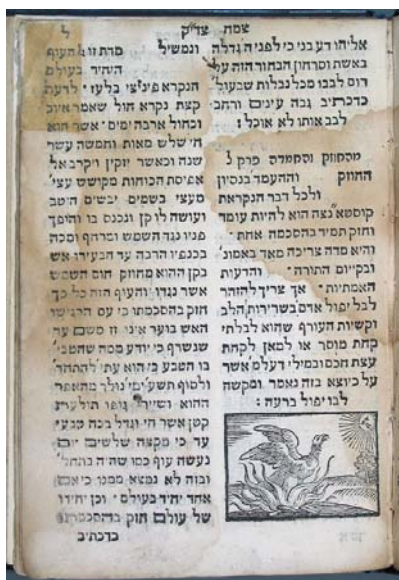 צמח צדיק
ל
אליהו דע בני כי לפניה גדלה
וסרחון הבחור הזה על
רום לבבו מכל נבלות שבעול'
כדכתיב גבה עינים ורחב
לבב אותו לא אוכל :
פרק ל
החוזק וההעמד בנסיון
ולכל דבר הנקראת
קוסטא"נצה הוא להיות עומד
וחזק תמיד בהסכמה אחת '
והיא מדה צריכה מאד באמונ'
ובקיום התורה ' והדעות
האמתיות ' אך צריך להזהר
לבל יפול אדם בשרירות הלב
וקשיות העורף שהוא לבלתי
קחת מוסר או למאן לקחת
עצת חכם ובמילי דעלמ' אשר
על כיוצא בזה נאמר ומקשה
לבו יפול ברעה :
ונמשיל מדת זו העוף
היחיד בעולם
הנקרא פיניצי בלעז ' לדעת
קצת נקרא חול שאמר איוב
וכחול ארבה ימים ' אשר הוא
חי שלש מאות וחמשה עשר
שנה וכאשר יזקין ויקרב אל
אפיסת הכוחות מקושש עצי'
מעצי בשמים יבשים היטב
ועושה לו קן ונכנס בו והופך
פניו נגד השמש ומכה
בכנפיו הרבה עד הבעירו אש
בקן ההוא מחוזק חום השמש
אשר נגדו והעוף הזה כל כך
חזק בהסכמתו כי עם הרגישו
האש בוער אינו זז משם עד
שנשרף כי יודע
בו הטבע כי הוא עתי להתחד'
ולסוף תשע ימי' נולד מהאפר
ההוא גופו תולעת
קטן אשר חי וגדל בכח טבעי
עד כי מקצה שלשים יום
נעשה עוף כמו שהיה בתחל'
ובזה לא נמצא ממנו כי אם
אחד יחיד בעולם ' וכן יחידו
של עולם חזק בהסכמתו
כדכתיב